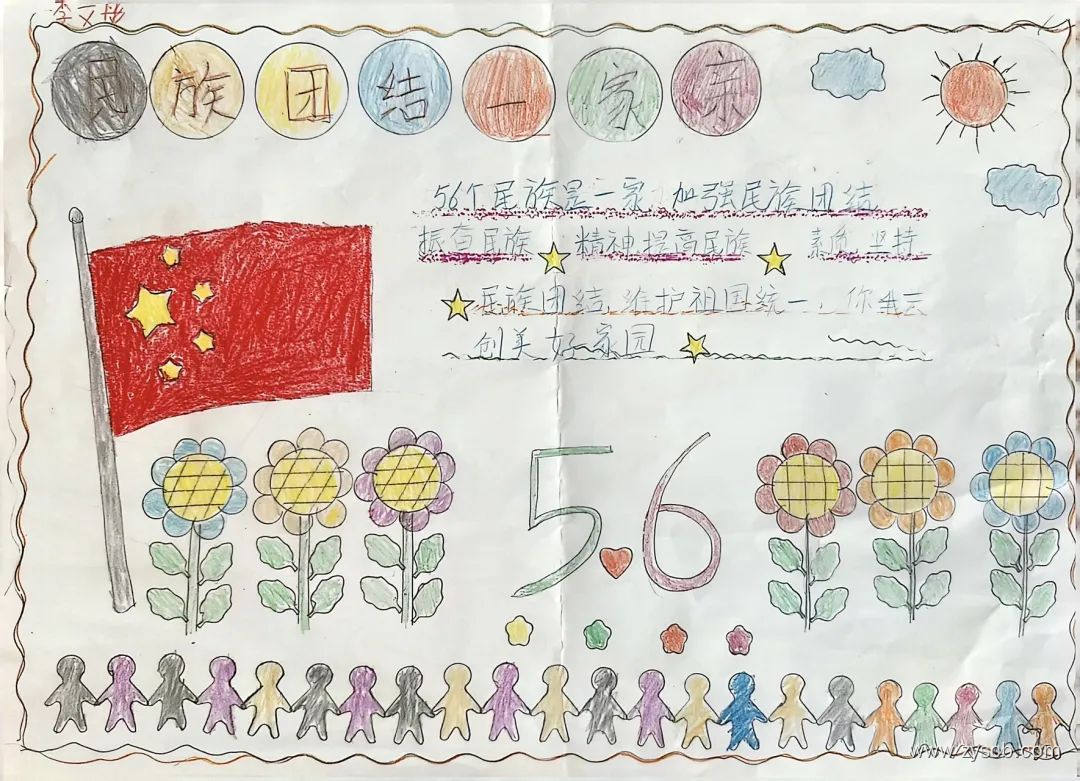 民族团结一家亲
56个民族是一家 加强民族团结
振奋民族 精神,提高民族 素质,坚持
民族团结,维护祖国统一,你我
创美好家园
56